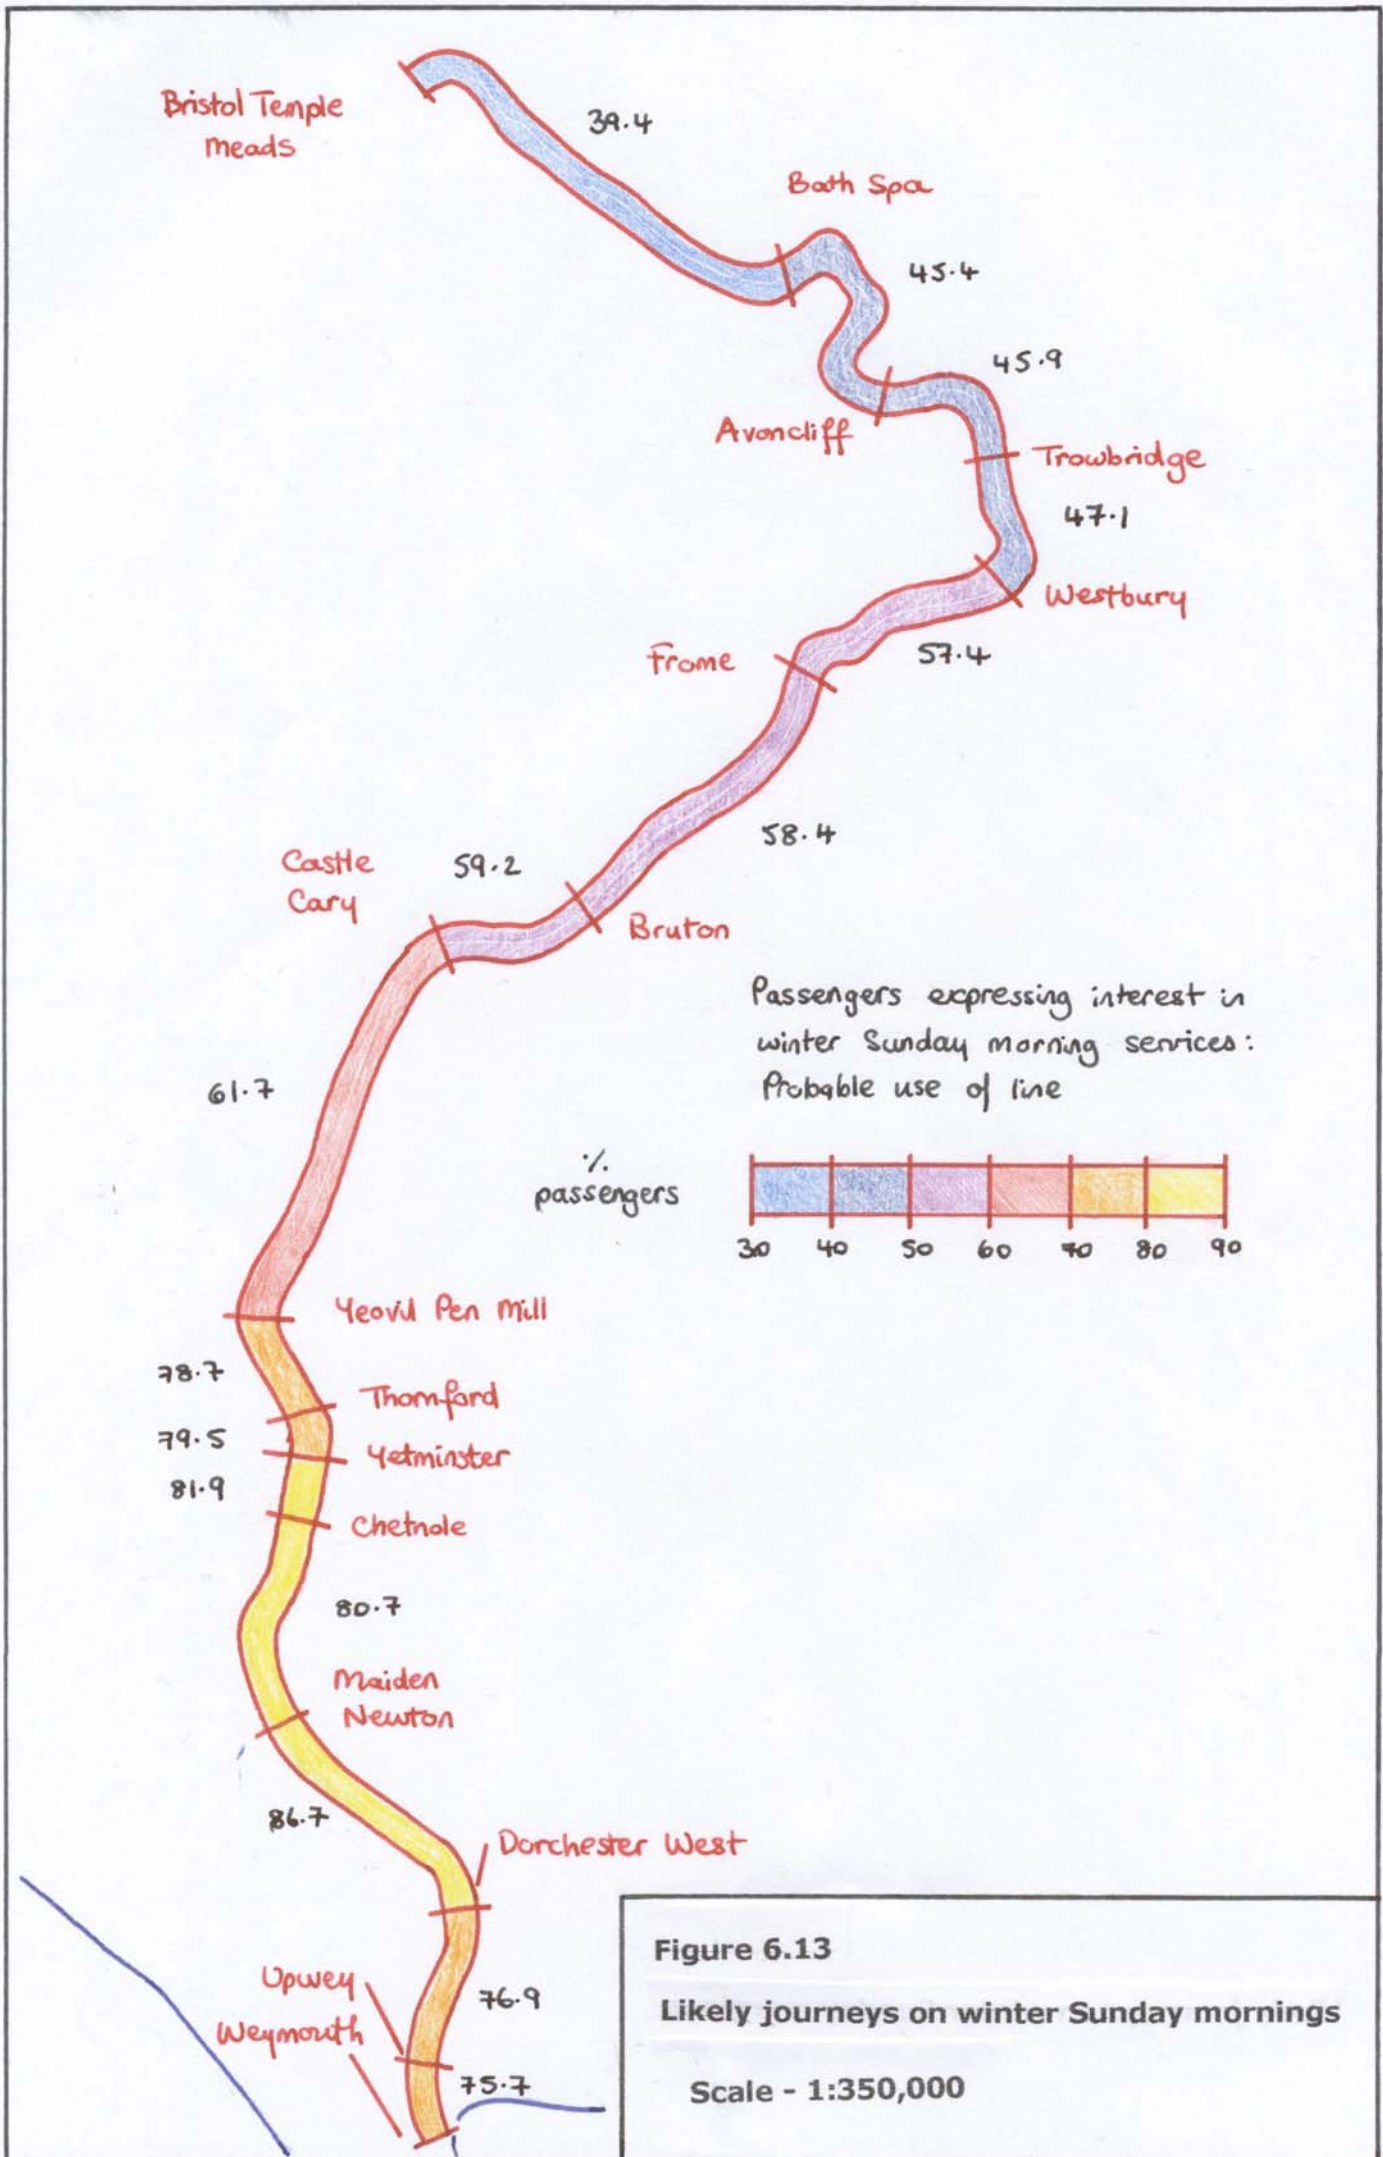 Bristol Temple
meads
39.4
Bath Spa
45.4
45.9
Avoncliff
Trowbridge
47.1
Westbury
Frome
57.4
58.4
Castle
Cary
59.2
Bruton
Passengers expressing interest in
winter Sunday morning services:
Probable use of line
61.7
%
passengers
30 40 50 60 70 80 90
Yeovil Pen Mill
78.7
Thornford
79.5
Yetminster
81.9
Chetnole
80.7
Maiden
Newton
86.7
Dorchester West
Figure 6.13
Likely journeys on winter Sunday mornings
Scale - 1:350,000
Upwey
76.9
Weymouth
75.7